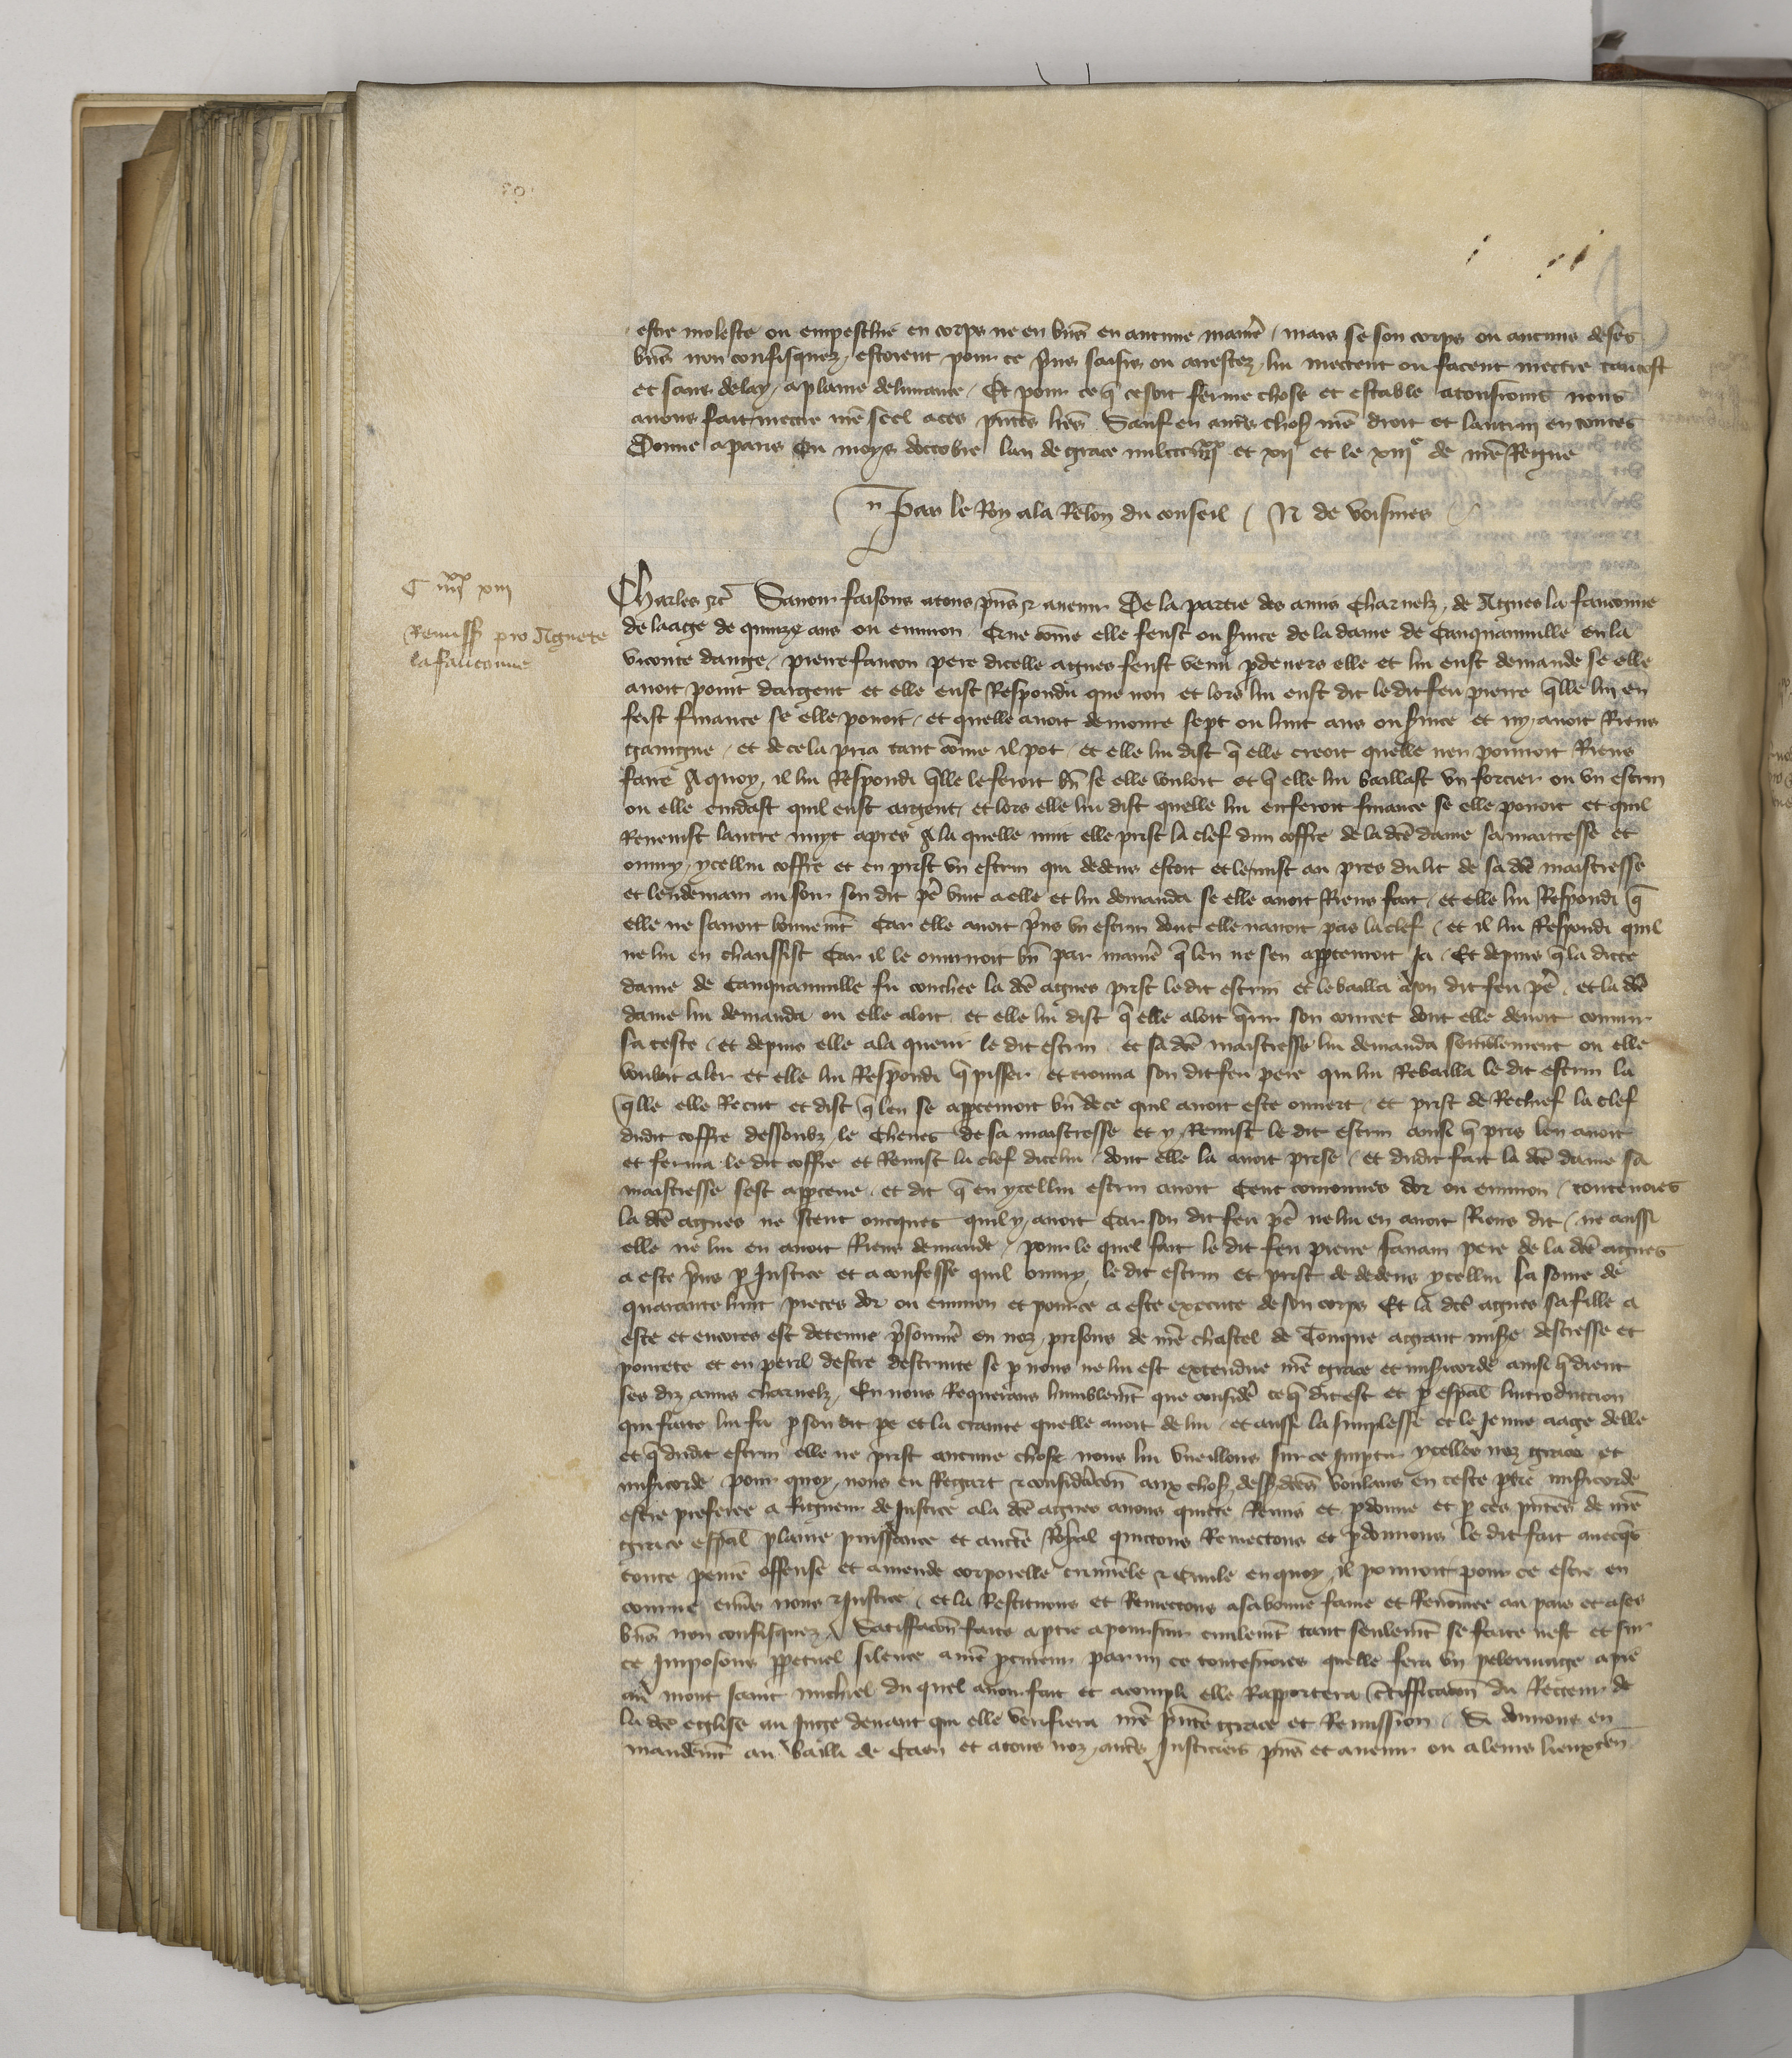 estre moleste ou empeschie en corps ne en biēs en aucune maniē / mais se son corps ou aucuns de ses
biēs non confisquez / estoient pour ce p̄ns saisis ou arrestez / lui mectent ou facent mectre tantost
et sans delay / a plaine deliurance / Et pour ce q̄ ce soit ferme chose et estable a tousiours nous
auons fait mettre nr̄e seel a ces p̄ntes lr̄es Sauf en autr̄s chos nr̄e droit et lautruy en toutes
Donne a paris ou moys doctobre lan de grace mil ccc iiiixx et xii et le xiiie de nr̄e Regne
Par le Roy a la Relon du conseil / N de voisines
C iiiixx xiii
Remiss pro Agnete
la fauconne
Charles ⁊c̄ Sauoir faisons a tous p̄ns ⁊ auenir De la partie des amis charnelz / de Agnes la fauconne
de laage de quinze ans ou enuiron Que com̄e elle feust ou s̄uice de la dame de Canquainuille en la
viconte dauge / pierre faucon pere dicelle agnes feust venu p̄deuers elle et lui eust demande se elle
auoit point dargent et elle eust Respondu que non et lors lui eust dit le dit feu pierre q̄lle lui en
feist finance se elle pouoit / et quelle auoit demoure sept ou huit ans ou s̄uice et ny auoit Riens
gaingne / et de ce la pria tant com̄e il pot / et elle lui dist q̄ elle creoit quelle nen pourroit Riens
faire A quoy / il lui Respondi q̄lle le feroit bn̄ se elle vouloit et q̄ elle lui baillast vn forcier ou vn escrin
ou elle cuidast quil eust argent / et lors elle lui dist quelle lui en feroit finance se elle pouoit et quil
Reuenist lautre nuyt apres A la quelle nuit elle prist la clef dun coffre de la dc̄e dame sa maistresse et
ouury ycellui coffre et en prist vn escrin qui dedens estoit et le mist au pres du lit de sa dc̄e maistresse
et lendemain au soir son dit pē vint a elle et lui demanda se elle auoit Riens fait / et elle lui Respondi q̄
elle ne sauoit bonnemt̄ Car elle auoit p̄ns vn escrin dont elle nauoit pas la clef / et il lui Respondi quil
ne lui en chaussist Car il le ouurroit bn̄ par maniē q̄ len ne sen appceuroit Ja / Et depuis q̄ la dicte
dame de Canquainuille fu couchee la dc̄e agnes prist le dit escrin et le bailla a son dit feu pē / et la dc̄e
dame lui demanda ou elle aloit et elle lui dist q̄ elle aloit q̄rir son coureet dont elle deuoit couurir
sa teste / et depuis elle ala querir le dit escrin et sa dc̄e maistresse lui demanda semblement ou elle
vouloit aler et elle lui Respondi q̄ pisser / et trouua son dit feu pere qui lui Rebailla le dit escrin la
q̄lle elle Recut et dist q̄ len se appceuroit bn̄ de ce quil auoit este ouuert / et prist de Rechief la clef
dudit coffre dessoubz le cheuet de sa maistresse et y Remist le dit escrin ainsi q̄ pris len auoit
et ferma le dit coffre et Remist la clef dicelui dont elle la auoit prise / et dudit fait la dc̄e dame sa
maistresse sest appceue / et dit q̄ en ycellui escrin auoit Cent couronnes dor ou enuiron / touteuoies
la dc̄e agnes ne sceut oncques quil y auoit Car son dit feu pē ne lui en auoit Riens dit / ne aussi
elle ne lui en auoit Riens demande / pour le quel fait le dit feu pierre pere de la dc̄e agnes
a este p̄ns p̄ Justice et a confesse quil ouury le dit escrin et prist de dedens ycellui la some de
quarante huit pieces dor ou enuiron et pour ce a este execute de son corps Et la dc̄e agnes sa fille a
este et encores est detenue p̄sonniē en noz prisons de nr̄e chastel de Touque a grant misē destresse et
pourete et en peril destre destruite se p̄ nous ne lui est extendue nr̄e grace et mis̄icorde ainsi q̄ dient
ses diz amis charnelz / En nous Requerans humblemt̄ que consider̄ ce q̄ dit est et p̄ esp̄al lintroduccion
qui faite lui fu p̄ son dit pē et la crainte quelle auoit de lui / et aussi la simplesse et le Jeune aage delle
et q̄ dudit escrin elle ne prist aucune chose nous lui vueillons sur ce impartir ycelles noz grace et
mis̄icorde pour quoy nous eu Regart ⁊ consideracōn aux chos dess̄ dc̄es voulans en ceste ptie mis̄icorde
estre preferee a Rigueur de Justice a la dc̄e agnes auons quicte Remis et p̄donne et p̄ ces p̄ntes de nr̄e
grace esp̄al plaine puissance et auctē Royal quictons Remectons et p̄donnons le dit fait auecq̄s
toute peine offense et amende corporelle criminele ⁊ Ciuile en quoy il pourroit pour ce estre en
couruē enuers nous ⁊ Justice / et la Restituons et Remectons a sa bonne fame et Renom̄ee au pais et a ses
biēs non confisquez Satiffacōn faite a ptie a poursuir ciuilemt̄ tant seulemt̄ se faite nest et sur
ce Imposons ppetuel silence a nr̄e p̄cureur parmi ce toutesuoies quelle fera vn pelerinage a pie
au mont saint michiel du quel auoir fait et acompli elle Rapportera c̄tifficacōn du Recteur de
la dc̄e eglise au Juge deuant qui elle verifiera nr̄e p̄nte grace et Remission Si donnons en
mandemt̄ au bailli de Caen et a tous noz autr̄s Justiciers p̄ns et auenir ou a leurs lieuxten̄